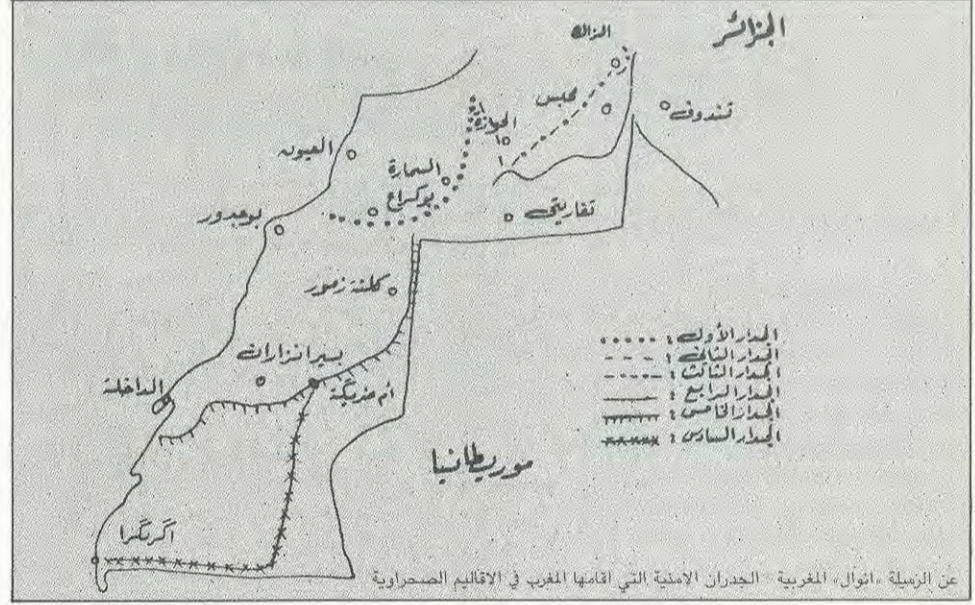 الجزائر
الزاك
محبس
تندوف
الحوزة
العيون
السمارة
بوكراع
تفاريتي
بوجدور
كلتة زمور
بيرانزاران
الداخلة
أم دريگة
موريطانيا
اگرگرا
الجدار الأول :
الجدار الثاني :
الجدار الثالث :
الجدار الرابع :
الجدار الخامس :
الجدار السادس :
عن الزميلة «انوال» المغربية - الجدران الامنية التي اقامها المغرب في الاقاليم الصحراوية